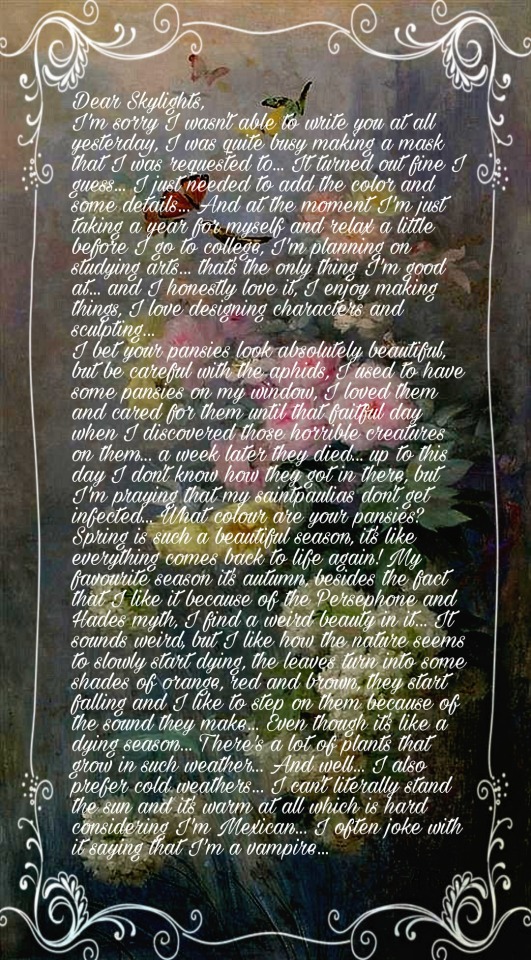 Dear Skylights,
I'm sorry I wasn't able to write you at all
yesterday, I was quite busy making a mask
that I was requested to... It turned out fine I
guess... I just needed to add the color and
some details... And at the moment I'm just
taking a year for myself and relax a little
before I go to college, I'm planning on
studying arts... thats the only thing I'm good
at... and I honestly love it, I enjoy making
things, I love designing characters and
sculpting...
I bet your pansies look absolutely beautiful,
but be careful with the aphids, I used to have
some pansies on my window, I loved them
and cared for them until that faitful day
when I discovered those horrible creatures
on them... a week later they died... up to this
day I don't know how they got in there, but
I'm praying that my saintpaulias don't get
infected... What colour are your pansies?
Spring is such a beautiful season, its like
everything comes back to life again! My
favourite season its autumn, besides the fact
that I like it because of the Persephone and
Hades myth, I find a weird beauty in it... It
sounds weird, but I like how the nature seems
to slowly start dying, the leaves turn into some
shades of orange, red and brown, they start
falling and I like to step on them because of
the sound they make... Even though its like a
dying season... There's a lot of plants that
grow in such weather... And well... I also
prefer cold weathers... I can't literally stand
the sun and its warm at all which is hard
considering I'm Mexican... I often joke with
it saying that I'm a vampire...